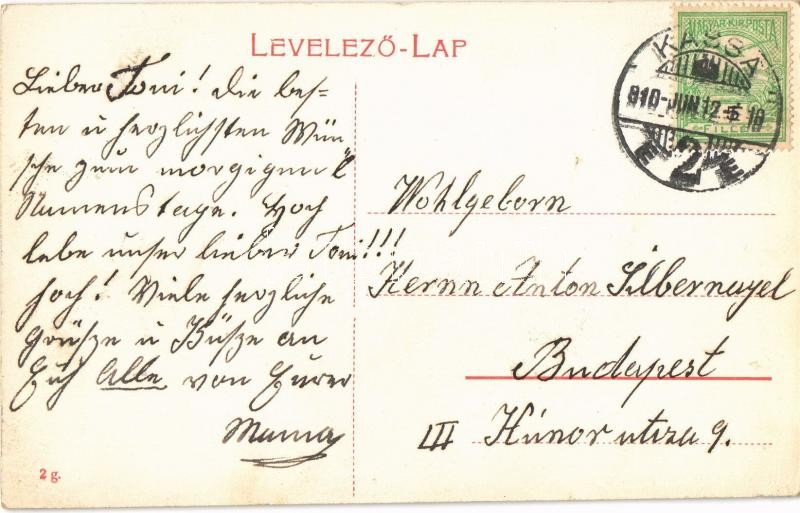 LEVELEZŐ-LAP
Lieber Toni! Die bes=
ten u herzlichsten Wün=
sche zum morgigen
Namenstage. Hoch
lebe unser lieber Toni!!!
hoch! Viele herzliche
Grüsze u Küsze an
Euch Alle von Eurer
Mama
2 g.
MAGYAR KIR. POSTA
KASSA
910-JUN 12
2
FILLÉR
Wohlgeborn
Herrn Anton Silbernagel
Budapest
III Húnor utcza 9.